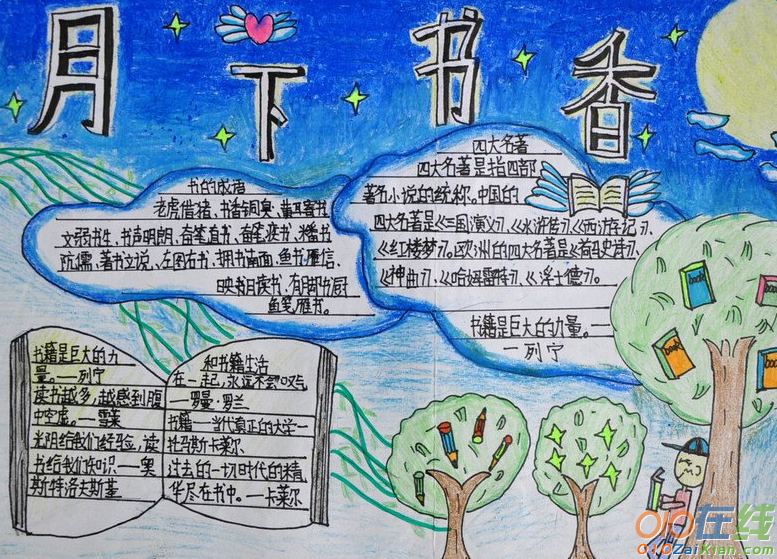 月下书香
书的成语
老虎借猪、书香铜臭、黄耳寄书
文弱书生、书声明朗、奋笔直书、奋笔疾书、燔书
坑儒、著书文说、左图右书、拥书南面、鱼书雁信、
映雪读书、有脚书厨
鱼笺雁书。
四大名著
四大名著是指四部
著名小说的统称。中国的
四大名著是《三国演义》、《水浒传》《西游记》、
《红楼梦》。欧洲的四大名著是《荷马史诗》、
《神曲》、《哈姆雷特》、《浮士德》。
书籍是巨大的力量。一
一列宁
书籍是巨大的力
量。一列宁
读书越多,越感到腹
中空虚。一雪莱
光阴给我们经验,读
书给我们知识一奥
斯特洛夫斯基
和书籍生活
在一起,永远不会叹气
一罗曼·罗兰
书籍一当代真正的大学一
托马斯卡莱尔
过去的一切时代的精
华尽在书中。一卡莱尔
book
book
book
010在线
010ZaiXian.com